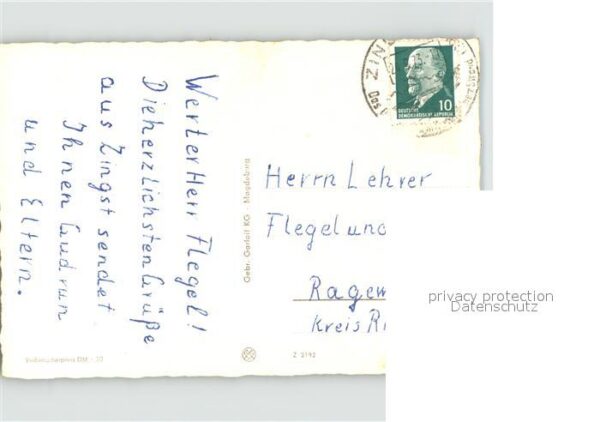 Werter Herr Flegel!
Die herzlichsten Grüße
aus Zingst sendet
Ihnen Gudrun
und Eltern.
Gebr. Garloff KG · Magdeburg
ZING
Das
10
DEUTSCHE
DEMOKRATISCHE REPUBLIK
Herrn Lehrer
Flegel und
Ragew
Kreis Ri
privacy protection
Datenschutz